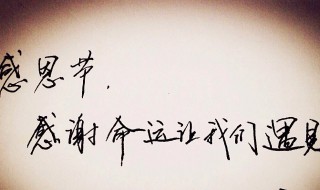 感恩节，
感谢命运让我们遇见